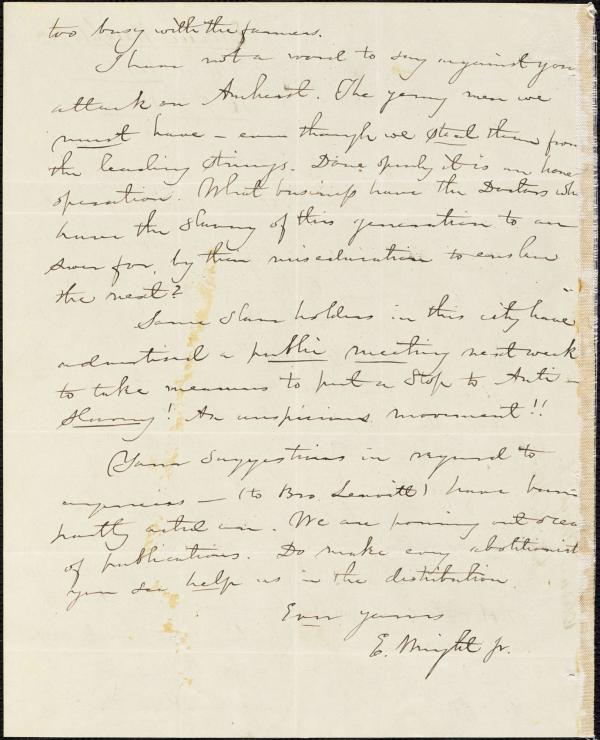 too busy with the farmers.
I have not a word to say against your
attack on Amherst. The young men we
must have – even though we steal them from
the leading strings. Done openly it is an hones
operation. What business have the Doctors who
have the slavery of this generation to an
swer for, by their miseducation to enslave
the next?
Some slave holders in this city have
advertised a public meeting next week
to take measures to put a stop to Anti –
Slavery! An auspicious movement!!
Your suggestions in regard to
agencies – (to Bro. Leavitt) have been
partly acted on. We are pouring out
of publications. Do make every abolitionist
you see help us in the distribution.
Ever yours
E. Wright Jr.